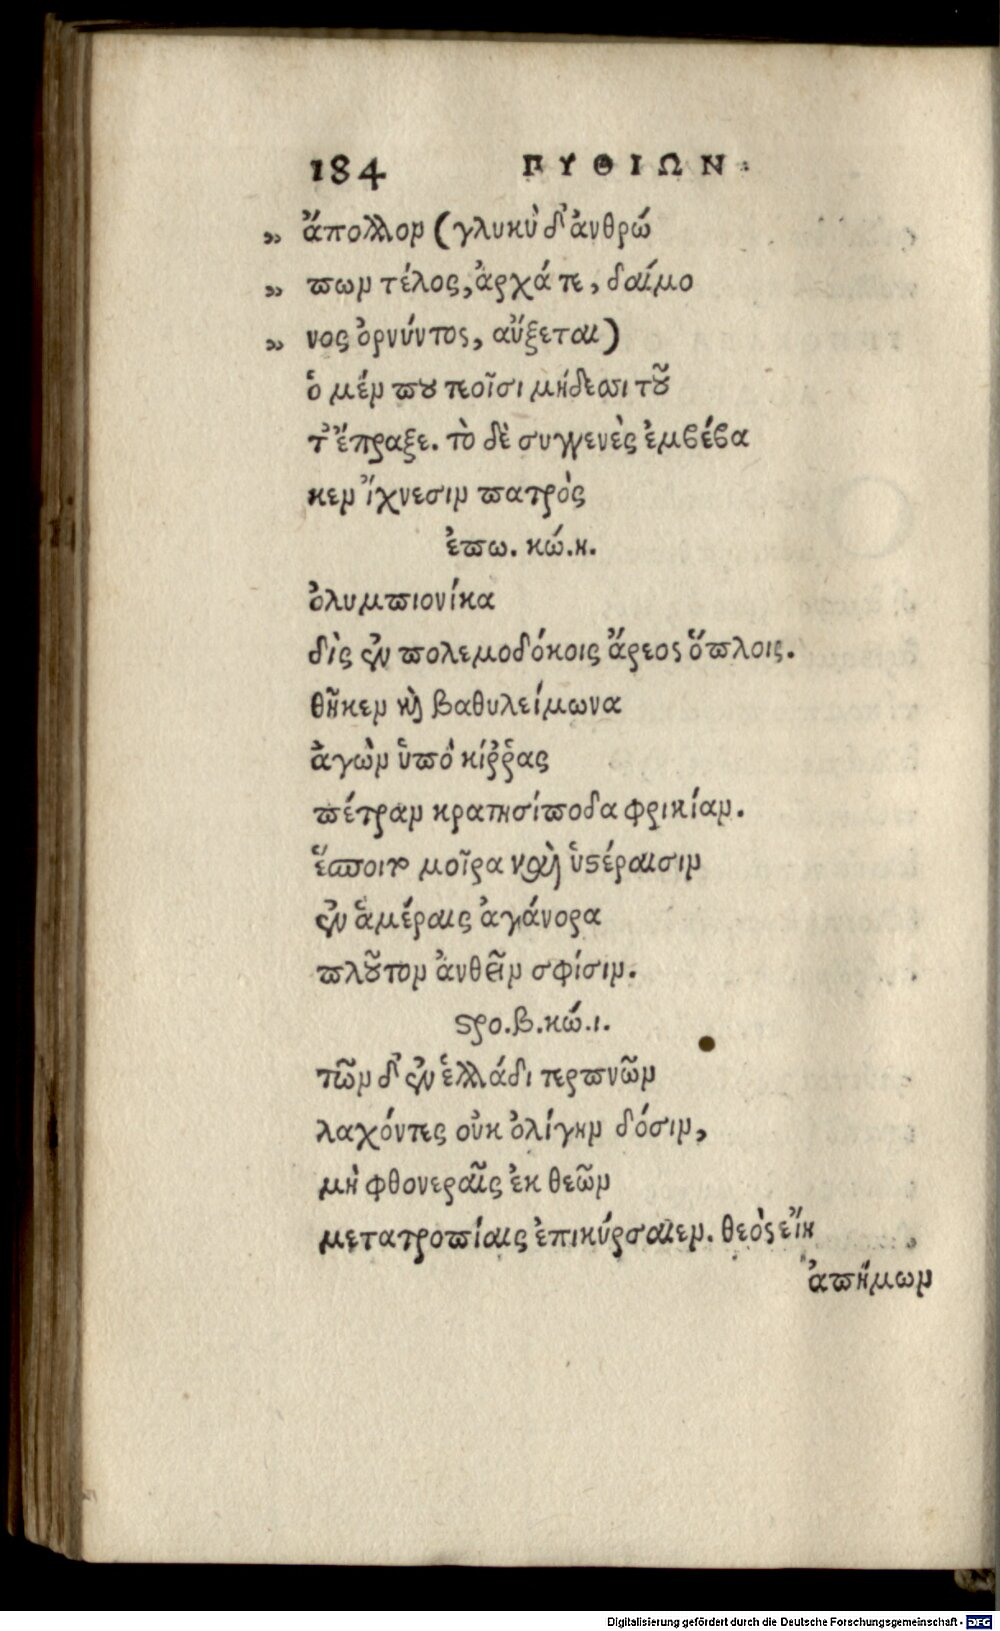 184 ΠΥΘΙΩΝ.
„ ἄπολλον (γλυκὺ δ' ἀνθρώ
„ πων τέλος, ἀρχά τε, δαίμο
„ νος ὀρνύντος, αὔξεται)
ὁ μέν που τεοῖσι μήδεσι τοῦ
τ' ἔπραξε. τὸ δὲ συγγενὲς ἐμβέβα
κεν ἴχνεσιν πατρὸς
ἐπω. κώ.η.
ὀλυμπιονίκα
δὶς ἐν πολεμοδόκοις ἄρεος ὅπλοις.
θῆκεν καὶ βαθυλείμωνα
ἀγὼν ὑπὸ κίῤῥας
πέτραν κρατησίποδα φρικίαν.
ἕσποιτο μοῖρα καὶ ὑστέραισιν
ἐν ἁμέραις ἀγάνορα
πλοῦτον ἀνθεῖν σφίσιν.
στρο.β.κώ.ι.
τῶν δ' ἐν ἑλλάδι τερπνῶν
λαχόντες οὐκ ὀλίγην δόσιν,
μὴ φθονεραῖς ἐκ θεῶν
μετατροπίαις ἐπικύρσαιεν. θεὸς εἴη
ἀπήμων
Digitalisierung gefördert durch die Deutsche Forschungsgemeinschaft - DFG